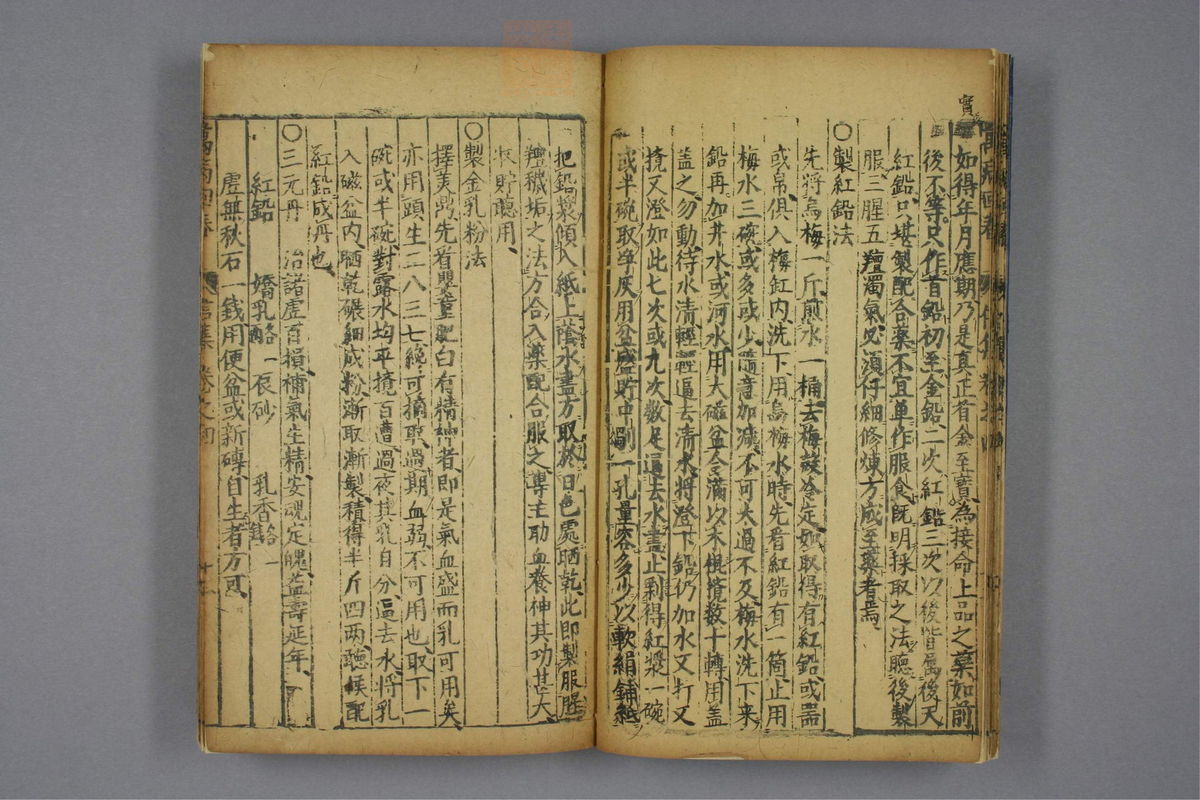 實
如得年月應期乃是真正首金至寶為接命上品之藥如前
後不等只作首鉛初至金鉛二次紅鉛三次以後皆屬後天
紅鉛只堪製配合藥不宜單作服食既明採取之法聽後製
服三腥五羶濁氣必須仔細修煉方成至藥者焉
〇製紅鉛法
先將烏梅一斤煎水一桶去梅放冷定如取得有紅鉛或器
或帛俱入梅缸內洗下用烏梅水時先看紅鉛有一筒止用
梅水三碗或多或少隨意加減不可太過不及梅水洗下來
鉛再加井水或河水用大磁盆令滿以木棍攪數十轉用蓋
蓋之勿動待水清輕輕逼去清水將澄下鉛仍加水又打又
攪又澄如此七次或九次數足逼去水盡止剩得紅漿一碗
或半碗取淨灰用盆盛貯中剜一孔量容多少以軟絹鋪紙
把鉛漿傾入紙上蔭水盡方取於日色處晒乾此即製服腥
羶穢垢之法方合入藥配合服之專主助血養神其功甚大
收貯聽用
〇製金乳粉法
擇美鼎先看嬰童肥白有精神者即是氣血盛而乳可用矣
亦用頭生二八三七纔可擠取過期血弱不可用也取下一
碗或半碗對露水均平攪百遭過夜其乳自分逼去水將乳
入磁盆內晒乾碾細成粉漸取漸製積得半斤四兩聽候配
紅鉛成丹也
〇三元丹 治諸虛百損補氣生精安魂定魄益壽延年
紅鉛 嬌乳 辰砂 乳香
虛無秋石一錢用便盆或新磚自生者方可
萬病回春 卷之四